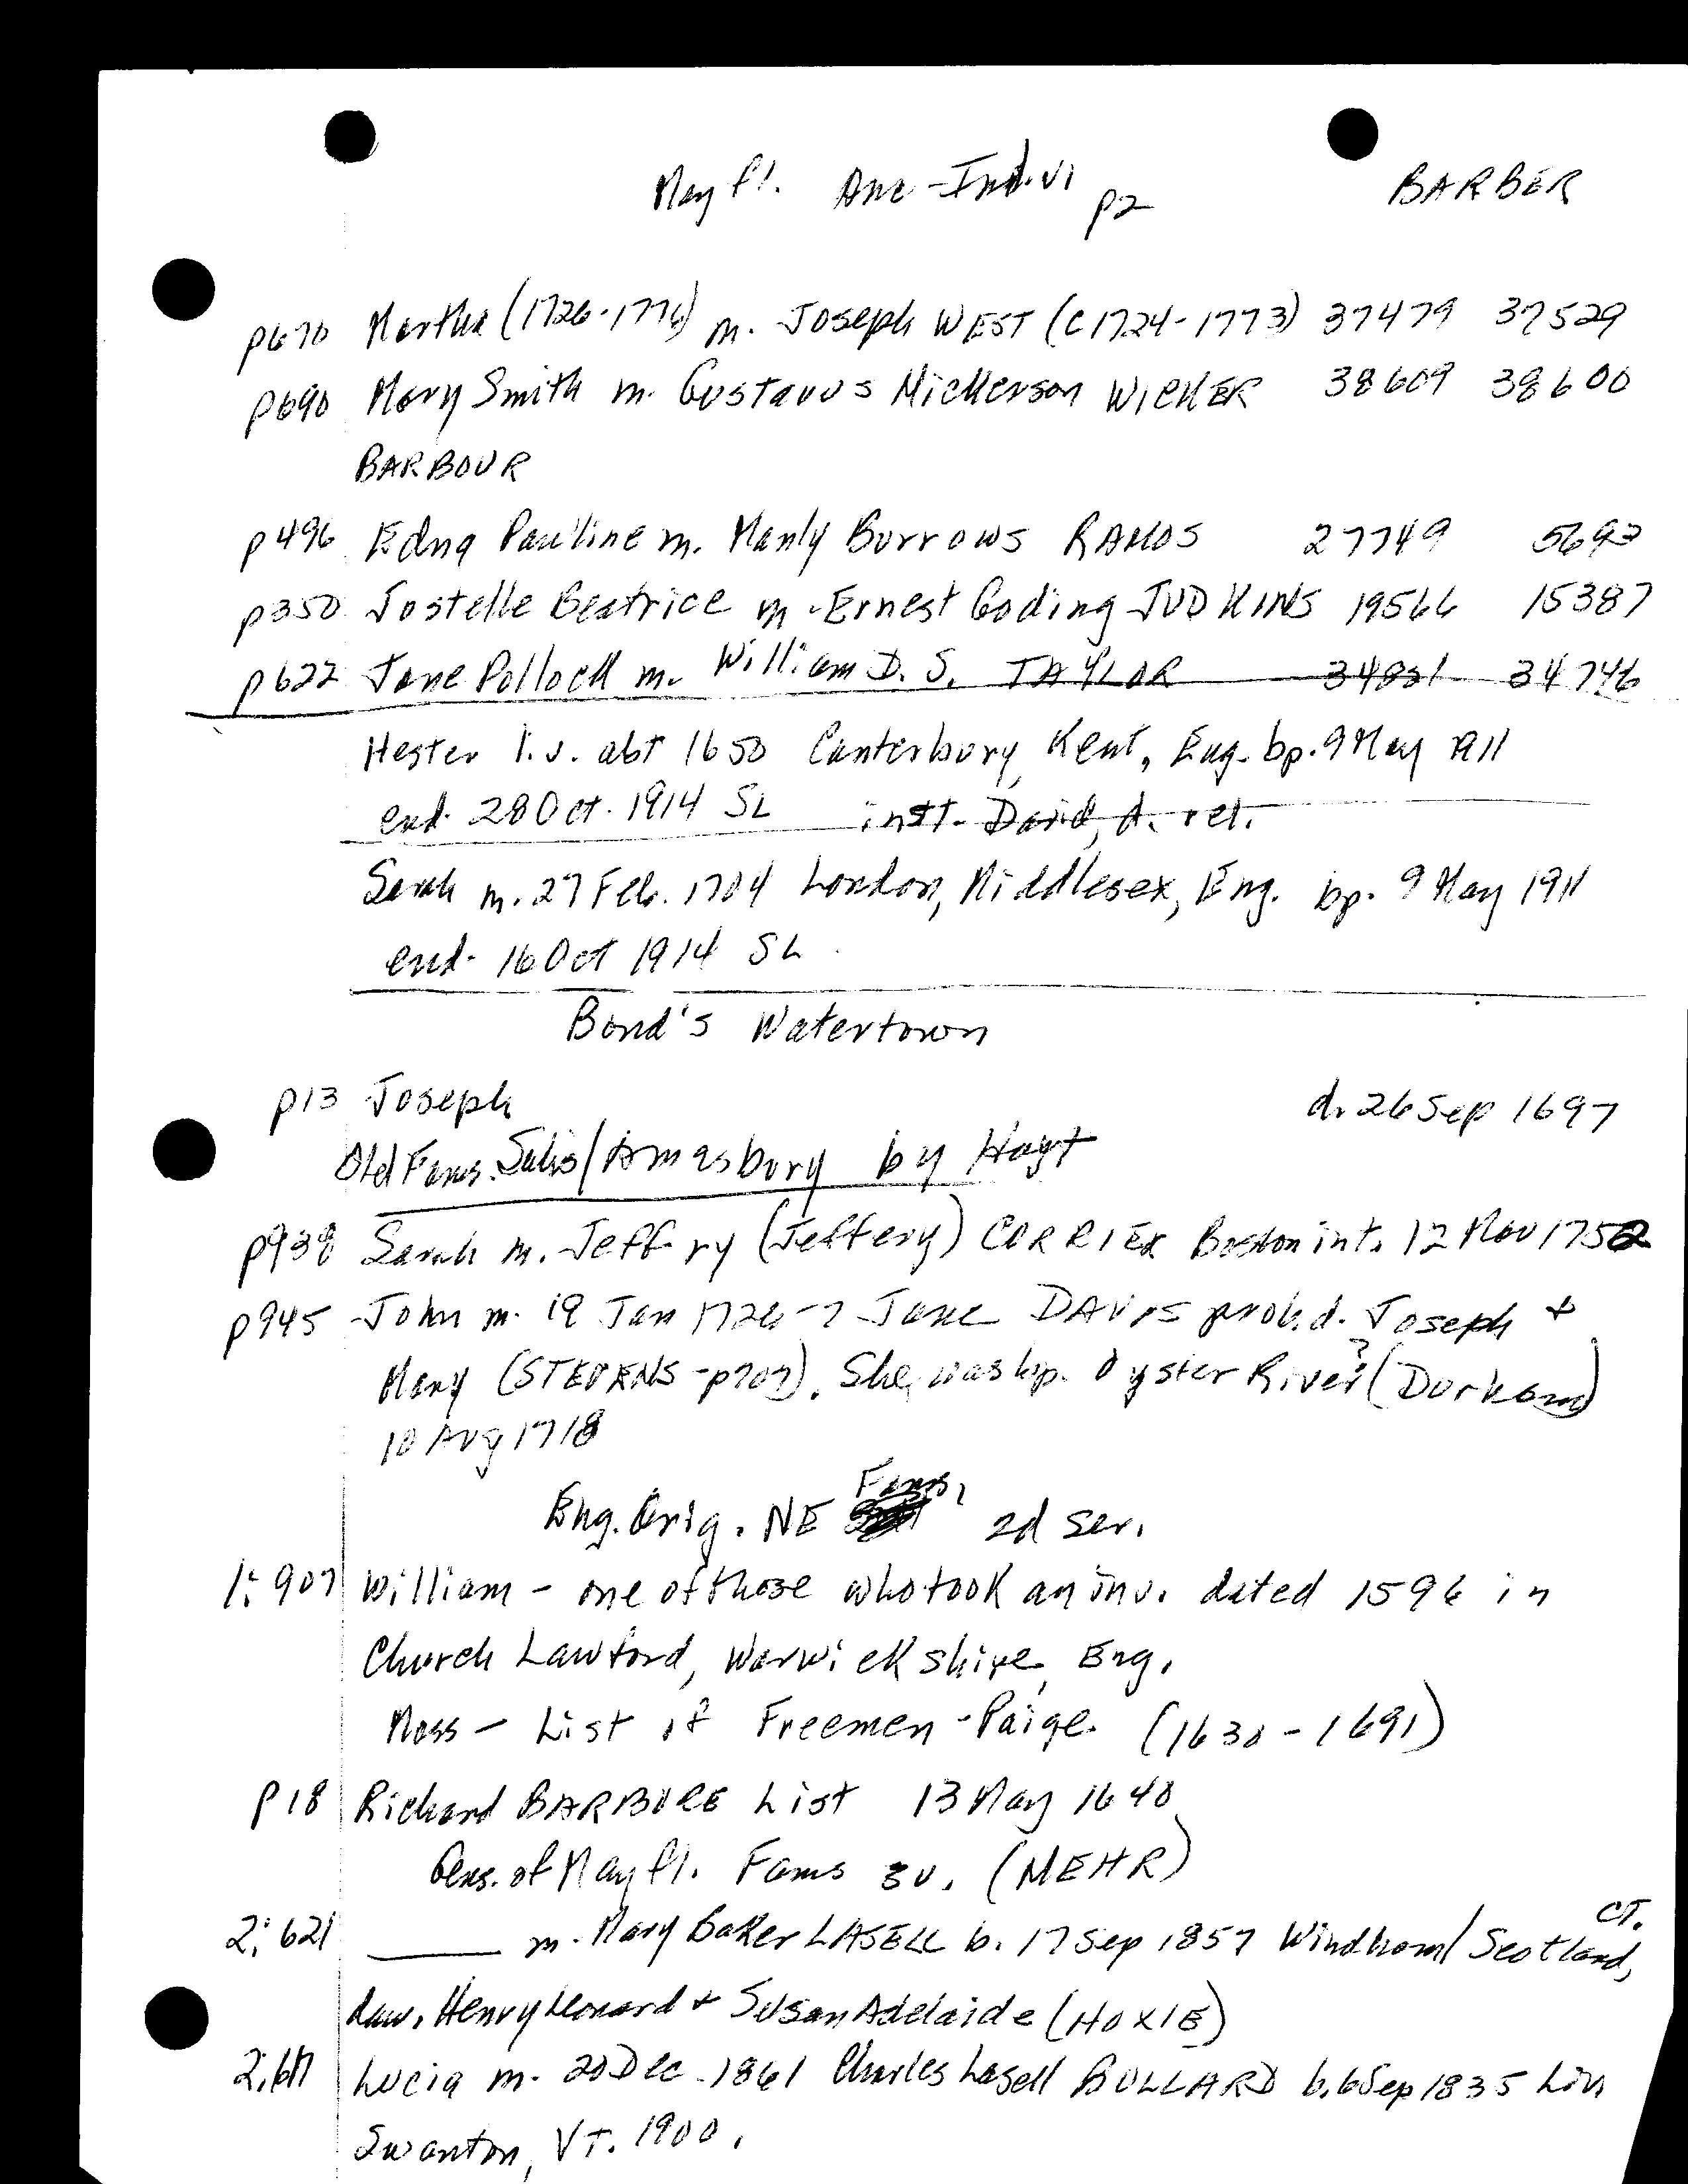 Mayfl. Anc-Indivi p2 BARBER
p670 Martha (1726-1776) m. Joseph WEST (c1724-1773) 37479 37529
p690 Mary Smith m. Gustavus Nickerson WICKER 38609 38600
BARBOUR
p496 Edna Pauline m. Manly Burrows RAMOS 27749 5693
p350 Jostelle Beatrice m. Ernest Goding JUDKINS 19566 15387
p622 Jane Pollock m. William D. S. TAYLOR 34831 34746
Hester l.v. abt 1650 Canterbury, Kent, Eng. bp. 9 May 1911
end. 28 Oct. 1914 SL inst. David, A. rel.
Sarah m. 27 Feb. 1704 London, Middlesex, Eng. bp. 9 May 1911
end. 16 Oct 1914 SL
Bond's Watertown
p13 Joseph d. 26 Sep 1697
Old Fams. Salis/Amesbury by Hoyt
p938 Sarah m. Jeffry (Jeffery) CURRIER Boston int. 12 Nov 1752
p945 John m. 19 Jan 1726-7 Jane DAVIS prob. d. Joseph +
Mary (STEVENS-p707). She was bp. Oyster River? (Durham)
10 Aug 1718
Eng. Orig. NE Fams. 2d ser.
1:907 William - one of those who took an inv. dated 1596 in
Church Lawford, Warwickshire, Eng.
Mass - List of Freemen - Paige (1630-1691)
p18 Richard BARBORE List 13 May 1640
Gens. of Mayfl. Fams 3v. (NEHR)
2:621 ____ m. Mary Baker LASELL b. 17 Sep 1857 Windham/Scotland, CT.
dau. Henry Leonard + Susan Adelaide (HOXIE)
2:617 Lucia m. 20 Dec. 1861 Charles Lasell BULLARD b. 6 Sep 1835 Liv
Swanton, VT. 1900.